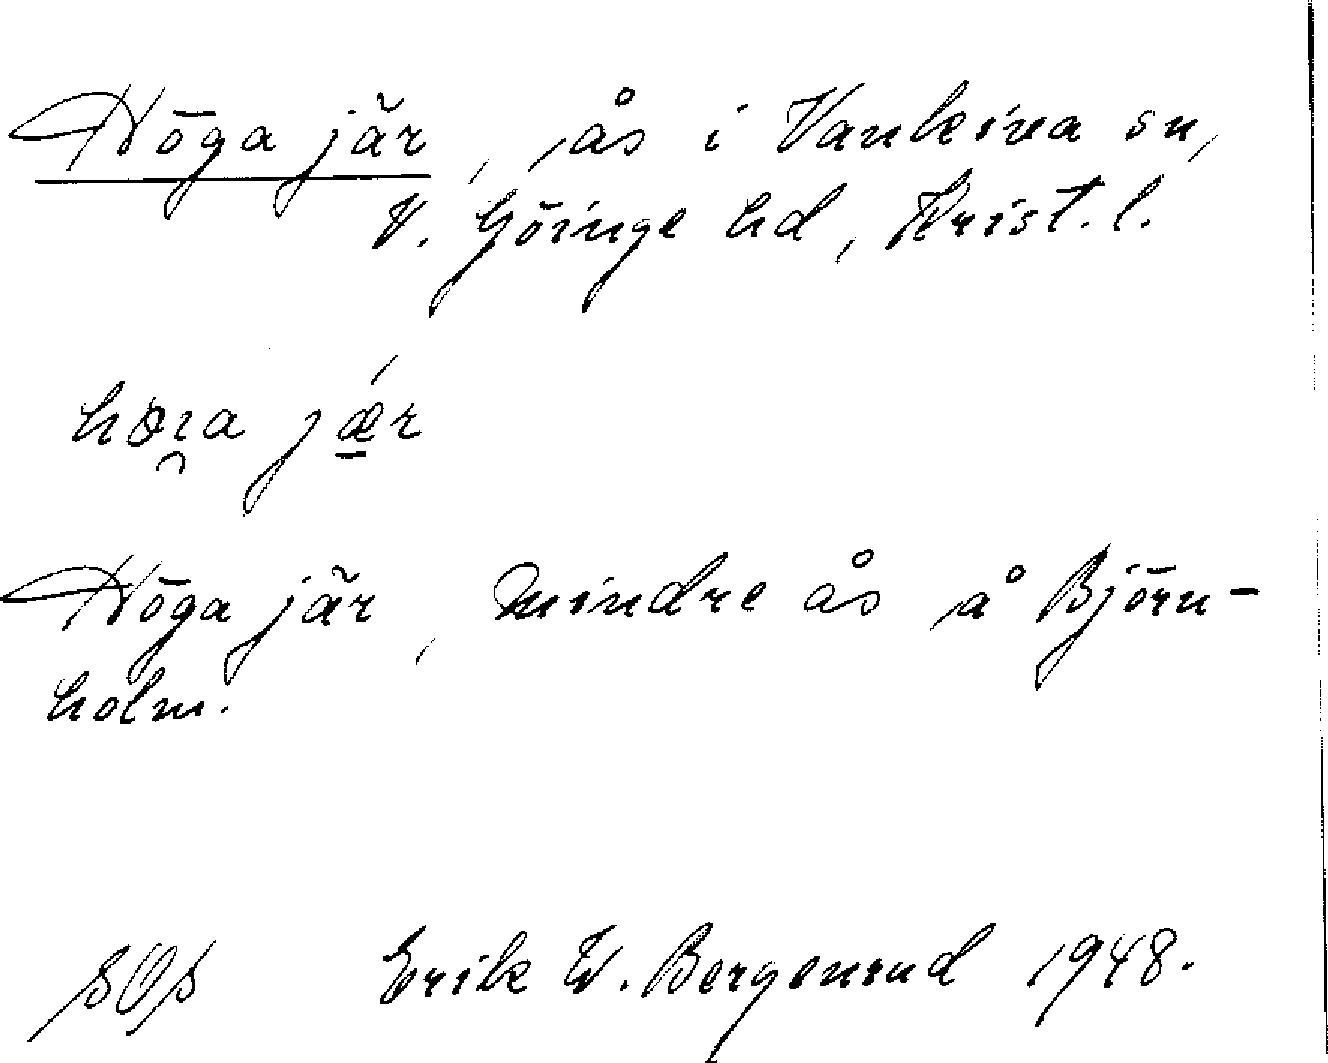 Höga jär, ås i Vankiva sn,
V. Göinge hd, Krist. l.
höɪ̯a jǽ̠r
Höga jär, mindre ås å Björn-
holm.
SOS Erik W. Bergenrud 1948.